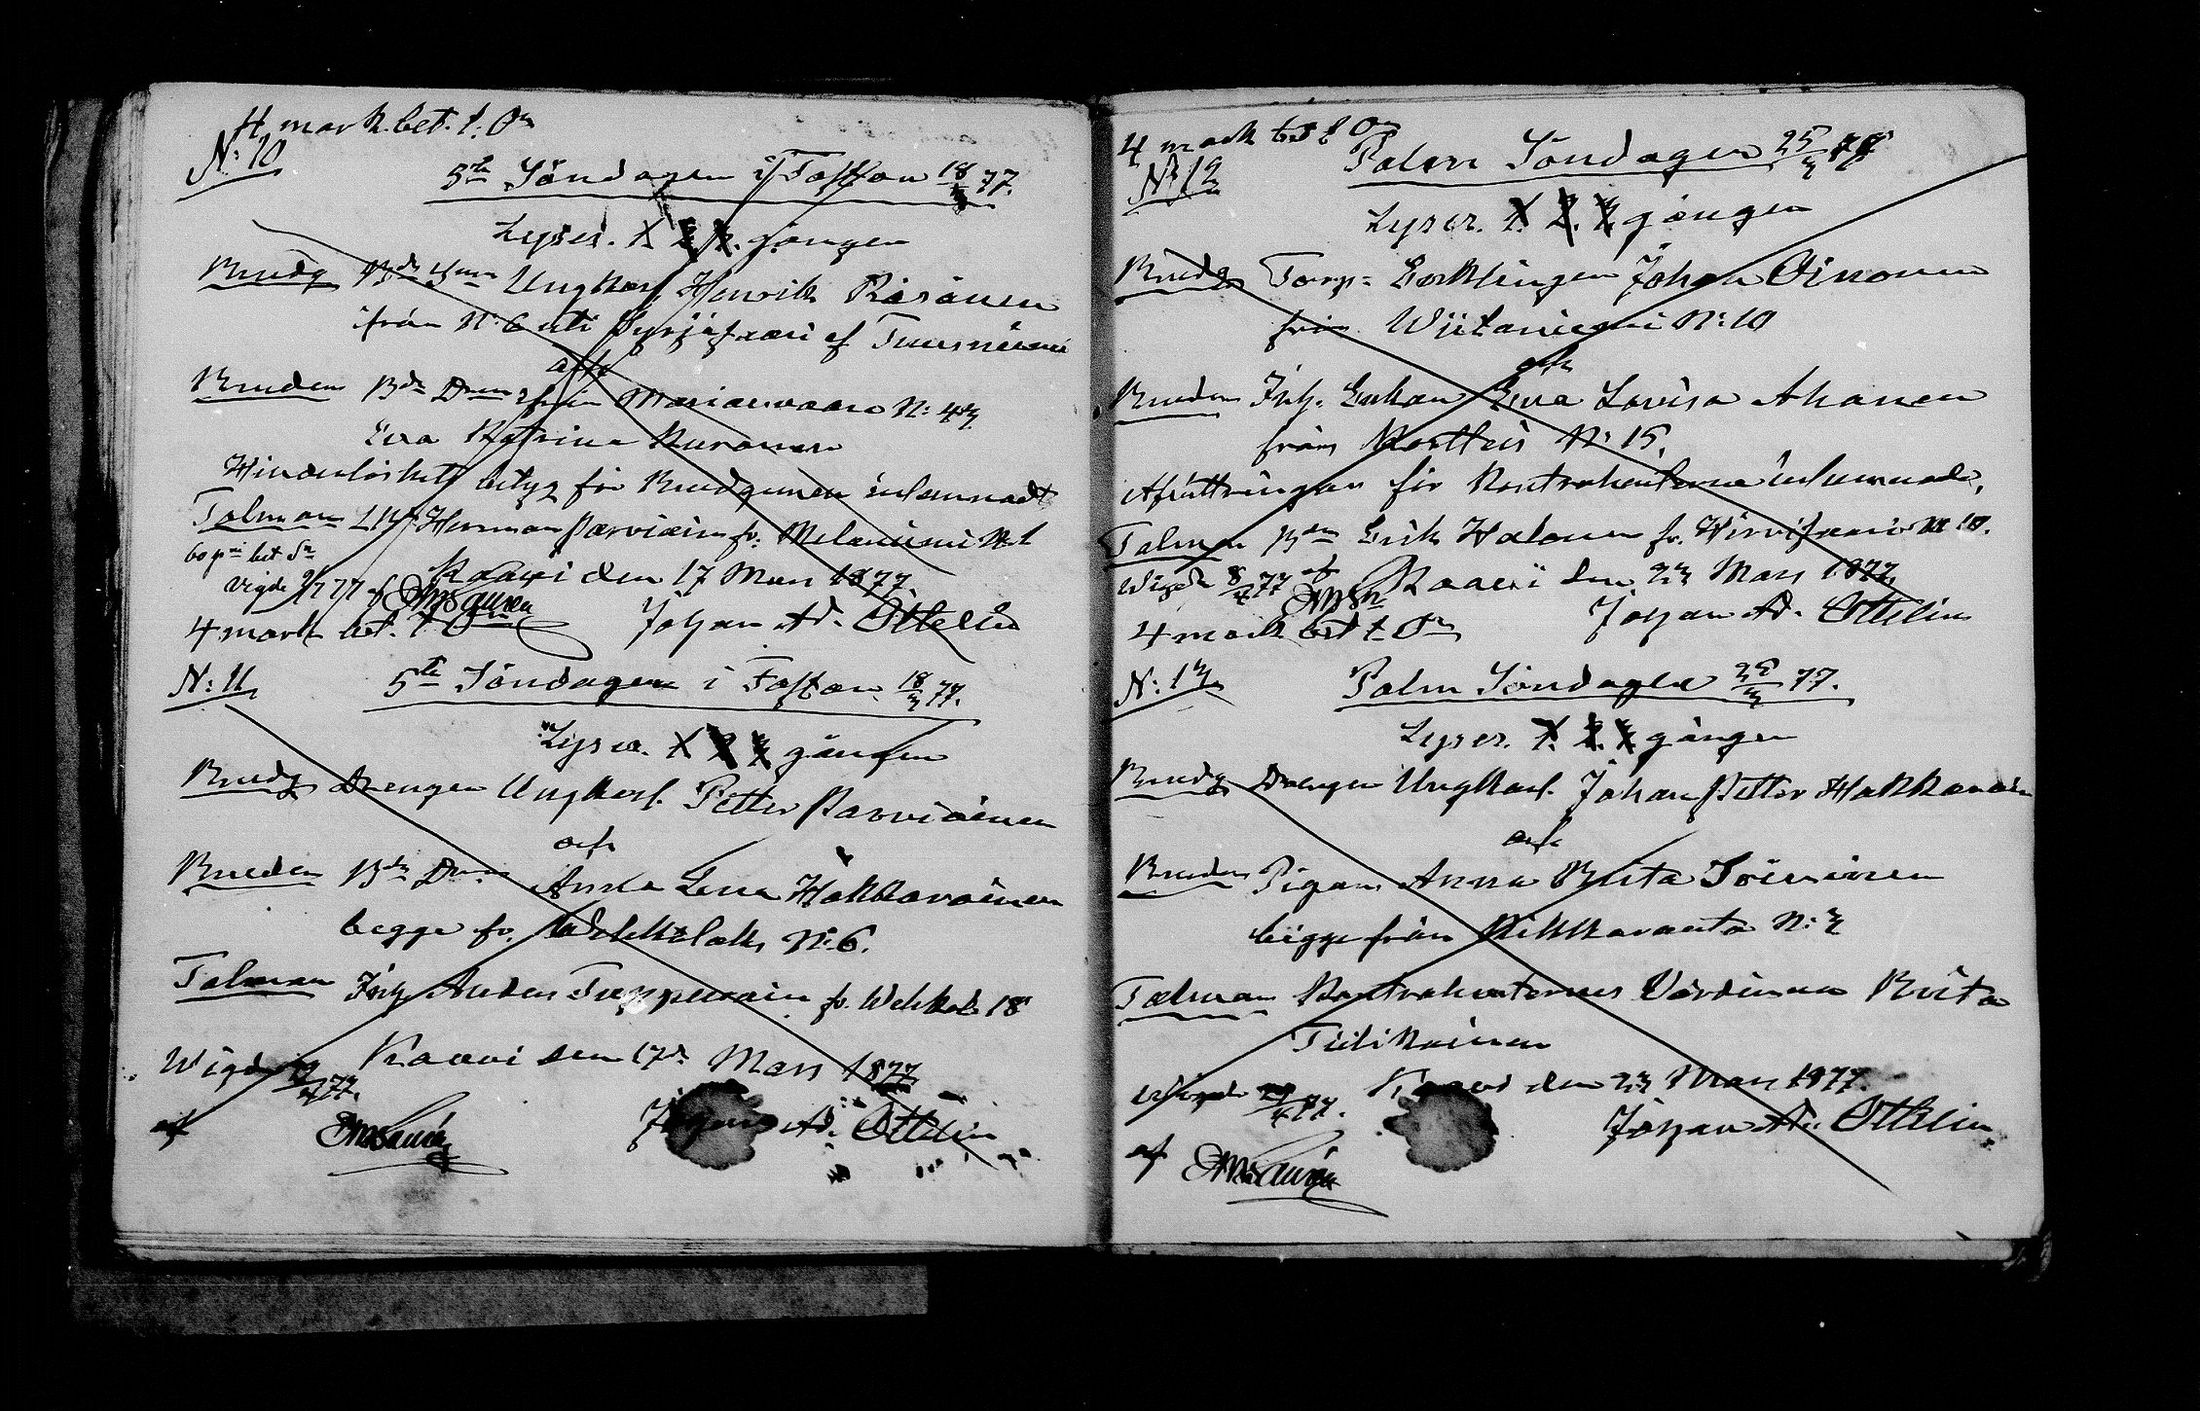 4 mark bet. J. On
N: 10
5te Söndagen i Fastan 18/3 77.
Lyses. 1. 2. 3. gången
Brudg Bde Son Ungkarl Henrik Räsänen
från N: 6 uti Syrjävaari af Tuusniemi
och
Bruden Bde Dn från Marianvaara N: 43
Eva Katrina Kuronen
Hinderlöshets betyg för Brudgumen inlemnadt
Talman Herman Parviain fr. Melaniemi N: 1
60 pi bet On
Vigde 2/4 77 af
Kaavi den 17 Mars 1877.
Johan Ad. Ottelin
4 mark bet. J.
N: 11
5te Söndagen i Fastan 18/3 77.
Lyses. 1 2 3 gången
Brudg Drengen Ungkarl. Petter Parviainen
och
Bruden Bde Dn Anna Lena Hakkarainen
begge fr. Wehkalaks N: 6.
Talman Inh Anders Turpeinain fr. Wehkal. 18
Wigde 2/4 77. Kaavi den 17de Mars 1877
af
Johan Ad. Ottelin
4 mark bet J On
N: 12
Palm Söndagen 25/3 77
Lyses. 1. 2. 3. gången
Brudg Torp= Enklingen Johan Oinonen
från Wiitaniemi N: 10
och
Bruden Inh. Enkan Eva Lovisa Ahonen
från Kortteis N: 15.
Afvittringar för Kontrahenterna inlemnade.
Talman Bdn Erik Halonen fr. Hirvisaari N: 10.
Wigde 8/4 77 af Kaavi den 23 Mars 1877
Johan Ad. Ottelin
4 mark bet J. On
N: 13
Palm Söndagen 25/3 77.
Lyses. 1. 2. 3. gången
Brudg Drengen Ungkarl. Johan Petter Hakkarain
och
Bruden Pigan Anna Brita Toivainen
begge från Rikkaranta N: 3
Talman Kontrahenternas Värdinna Brita
Tiilikainen
Wigde 29/4 77. Kaavi den 23 Mars 1877.
Johan Ad. Ottelin
af